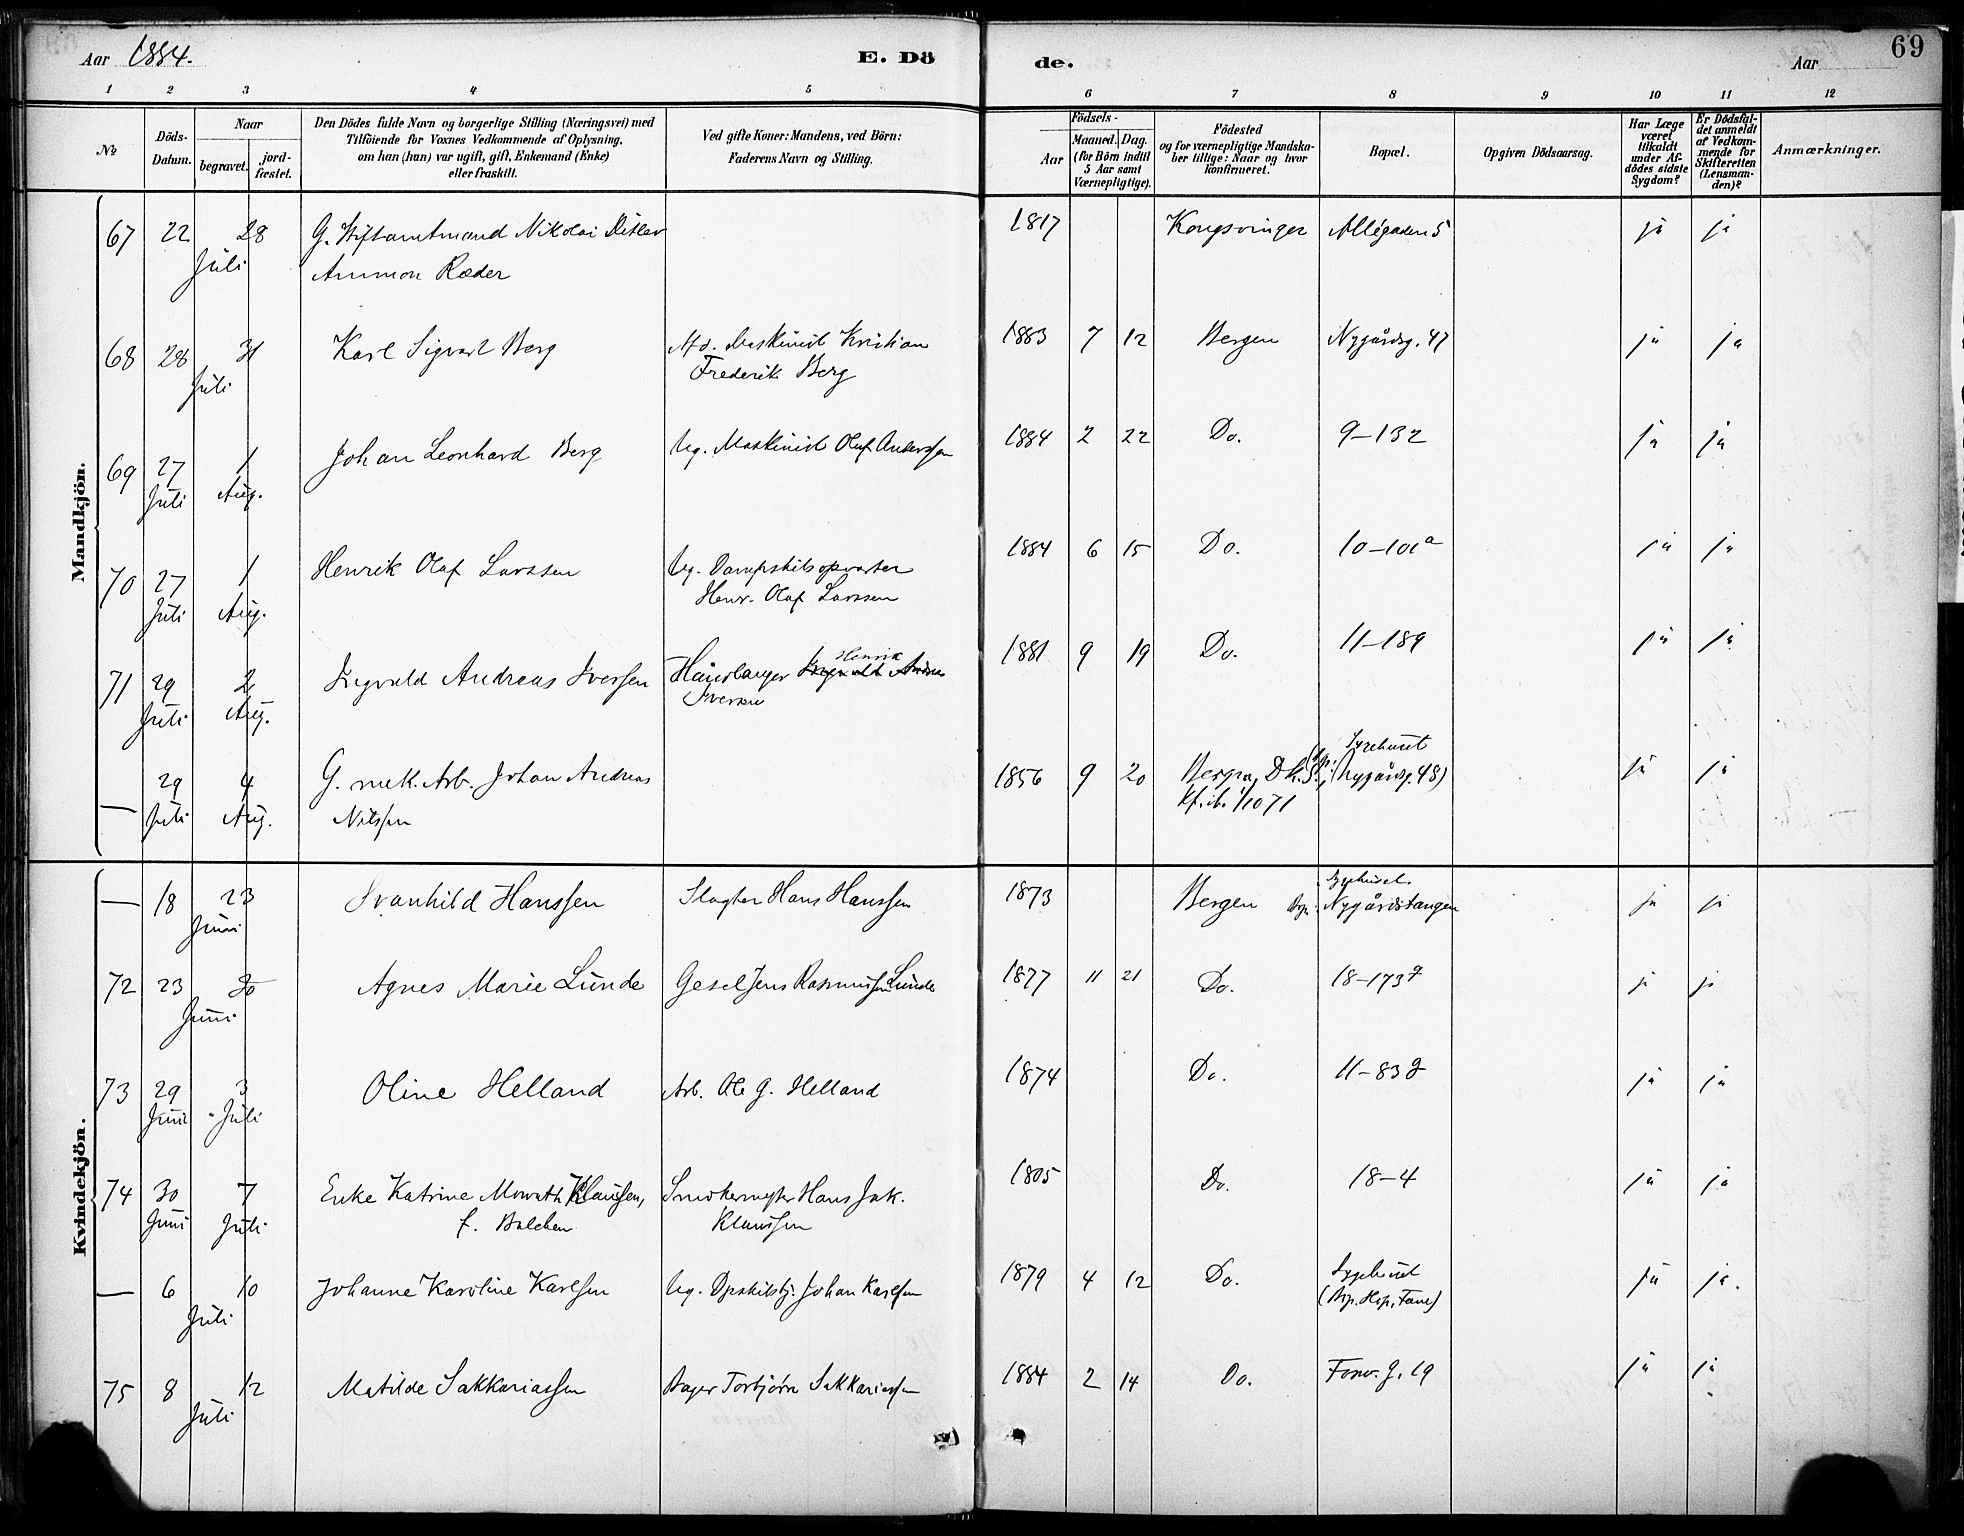 Aar 1884.
E. Döde.
Aar
69
1 2 3 4 5 6 7 8 9 10 11 12
№
Döds-Datum.
Naar
begravet.
jord-fæstet.
Den Dödes fulde Navn og borgerlige Stilling (Næringsvei) med
Tilföiende for Voxnes Vedkommende af Oplysning,
om han (hun) var ugift, gift, Enkemand (Enke)
eller fraskilt.
Ved gifte Koner: Mandens, ved Börn:
Faderens Navn og Stilling.
Födsels-
Aar
Maaned. Dag.
(for Börn indtil
5 Aar samt
Værnepligtige).
Födested
og for værnepligtige Mandska-
ber tillige: Naar og hvor
konfirmeret.
Bopæl.
Opgiven Dödsaarsag.
Har Læge
været
tilkaldt
under Af-
dödes sidste
Sygdom?
Er Dödsfal-
det anmeldt
af Vedkom-
mende for
Skifteretten
(Lensman-
den)?
Anmærkninger.
Mandkjön.
67 22 28 G. Stiftamtmand Nikolai Ditlev 1817 Kongsvinger Allégaden 5 ja ja
Juli Ammon Ræder
68 28 31 Karl Sigvart Berg Afd. Maskinist Kristian 1883 7 12 Bergen Nygårdsg. 47 ja ja
Juli Frederik Berg
69 27 1 Johan Leonhard Berg Ug. Maskinist Oluf Anderssen 1884 2 22 Do. 9–132 ja ja
Juli Aug.
70 27 1 Henrik Olaf Larssen Ug. Dampskibsopvarter 1884 6 15 Do. 10–101a ja ja
Juli Aug. Henr. Olaf Larssen
71 29 2 Ingvald Andreas Iverssen Handlanger Henrik 1881 9 19 Do. 11–189 ja ja
Juli Aug. Iversen
— 29 4 G. mek. Arb. Johan Andreas 1856 9 20 Bergen, DK. Sygehuset (Nygårdsg. 48) ja ja
Juli Aug. Nilssen Kf. ib. 1/10 71
Kvindekjön.
— 18 23 Svanhild Hanssen Slagter Hans Hanssen 1873 Bergen Sygehuset Nygårdstangen ja ja
Juni
72 23 30 Agnes Marie Lunde Gesel Jens Rasmussen Lunde 1877 11 21 Do. 18–173 ja ja
Juni
73 29 3 Oline Helland Arb. Ole G. Helland 1874 Do. 11–83 ja ja
Juni Juli
74 30 7 Enke Katrine Mowath Klaussen, Smørkermester Hans Jak. 1805 Do. 18–4 ja ja
Juni Juli f. Balchen Klaussen
— 6 10 Johanne Karoline Karlsen Ug. Dpskibsbj. Johan Karlsen 1879 4 12 Do. Sygehuset ja ja.
Juli (Bp. Hsp. Tane)
75 8 12 Matilde Sakkariassen Bager Torbjørn Sakkariassen 1884 2 14 Do. Fosw. G. 19 ja ja
Juli